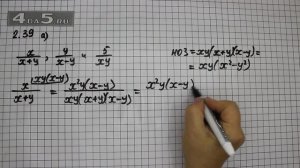 4BA5.RU
2.39 а)
x/(x+y), y/(x-y) и 5/(xy)
НОЗ = xy(x+y)(x-y) =
= xy(x²-y²)
x^{\xy(x-y)}/(x+y) = x²y(x-y)/(xy(x+y)(x-y)) = x²y(x-y)